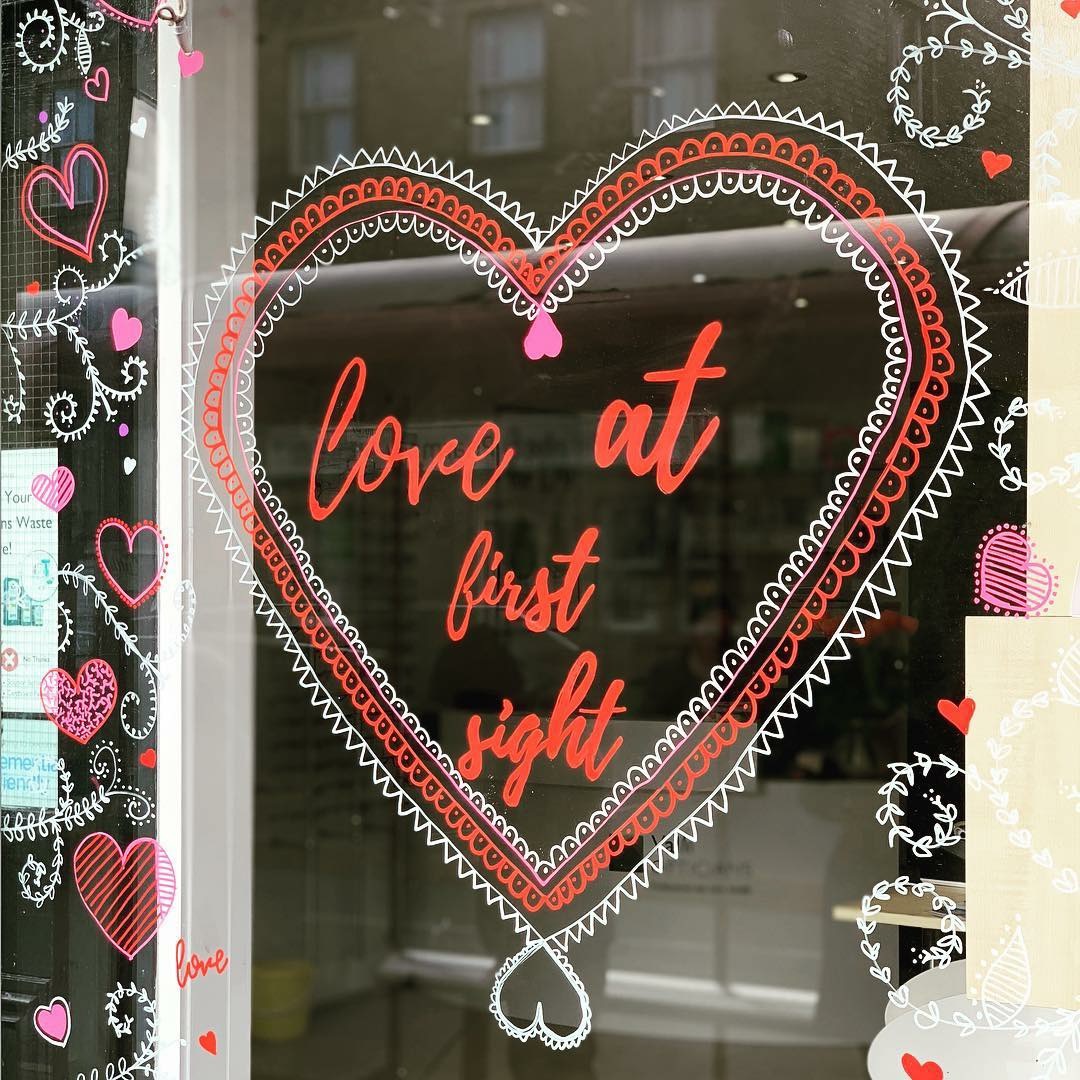 love at
first
sight
love
Your
ns Waste
e!
No Thanks